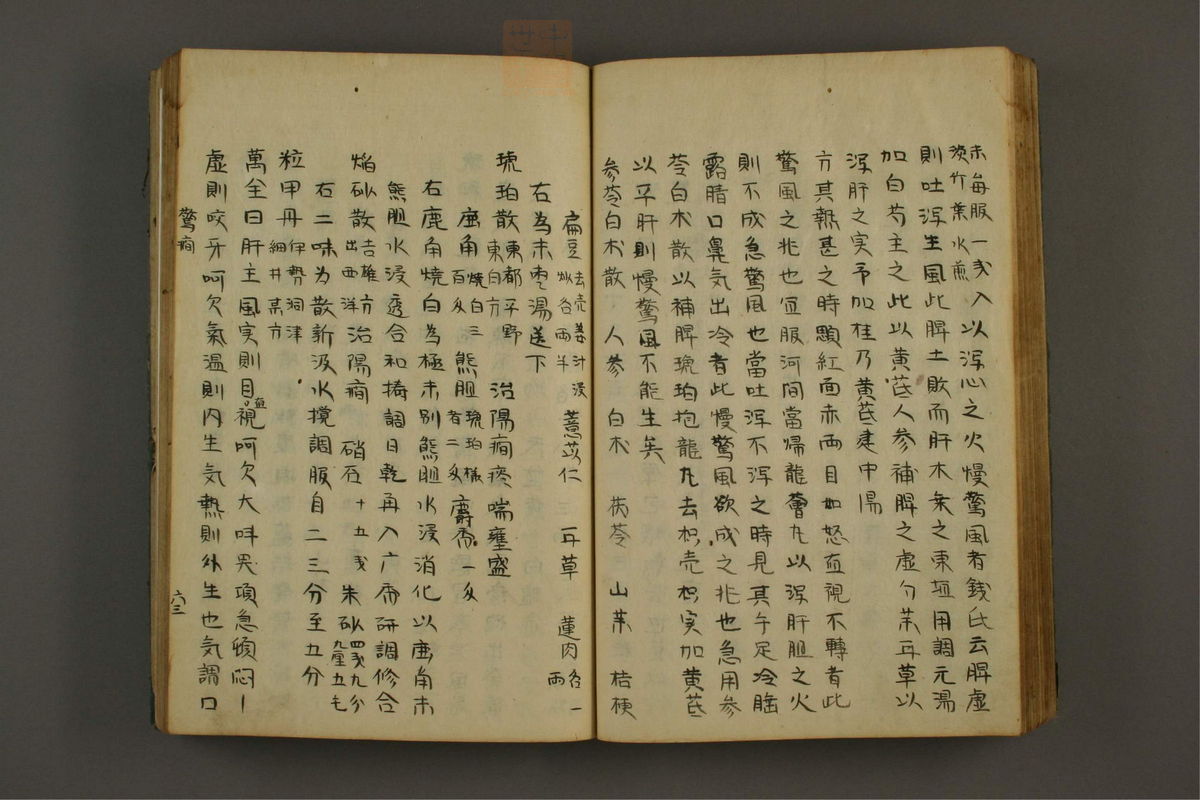 末每服一戔入
淡竹葉水煎
以泻心之火慢驚風者銭氏云脾虛
則吐泻生風此脾土敗而肝木乗之東垣用調元湯
加白芍主之此以黃芪人参補脾之虛勺茱耳草以
泻肝之実予加桂乃黃芪建中湯
方其熱甚之時顋紅面赤両目如怒直視不轉者此
驚風之兆也宜服河間當帰龍薈九以泻肝胆之火
則不成急驚風也當吐泻不泻之時見其手足冷睡
露睛口鼻気出冷者此慢驚風欲成之兆也急用参
苓白朮散以補脾琥珀抱龍九去枳壳枳実加黃芪
以平肝則慢驚風不能生矣
参苓白朮散 人参 白朮 茯苓 山茱 桔梗
扁豆 去壳姜汁浸
炒各両半
薏苡仁 耳草 蓮肉 各一
両
右為末枣湯送下
琥珀散 東都平野
東白方
治陽癇痰喘壅盛
鹿角 燒白三
百文
熊胆 琥珀様
者二文
麝香一文
右鹿角燒白為極末别熊胆水浸消化以鹿角末
熊胆水浸透合和搗調日乾再入麝研調修合
焰砂散 吉雄方
出西洋
治陽癇 硝石十五戔 朱砂 四戔九分
九厘五毛
右二味为散新汲水攪調服自二三分至五分
粒甲丹 伊勢洞津
細井髙方
萬全曰肝主風実則目直視呵欠大叫哭項急煩悶
虛則咬牙呵欠氣温則内生気熱則外生也気謂口
驚癇
六三